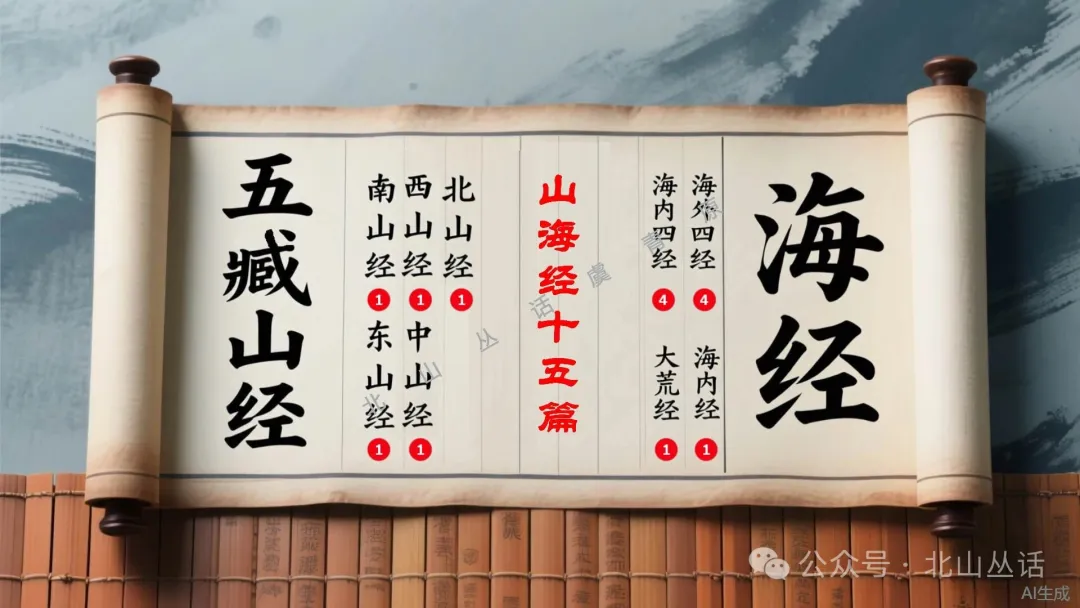 五臧山经
南山经
1
西山经
1
北山经
1
东山经
1
中山经
1
山海经十五篇
海内四经
4
海外四经
4
大荒经
1
海内经
1
海经
北山丛话
虞青原
公众号·北山丛话
AI生成